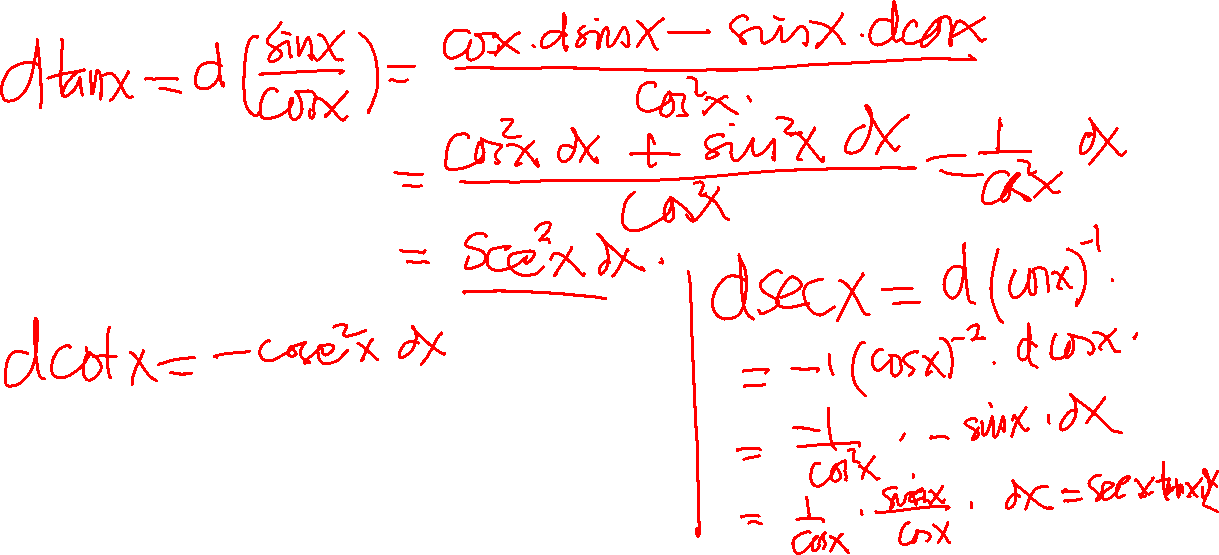 dtanx = d(sinx/cosx) = (cosx·dsinx − sinx·dcosx)/cos²x.
= (cos²x dx + sin²x dx)/cos²x = 1/cos²x dx
= sec²x dx.
dcotx = −csc²x dx
dsecx = d(cosx)⁻¹.
= −1(cosx)⁻²·dcosx.
= −1/cos²x · −sinx·dx
= 1/cosx · sinx/cosx · dx = secxtanx